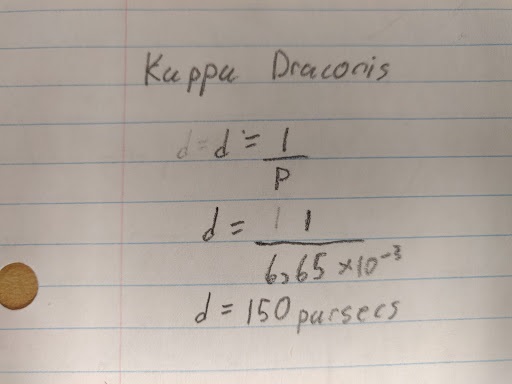 Kappa Draconis
d = d = 1/p
d = 1/6,65 × 10⁻³
d = 150 parsecs